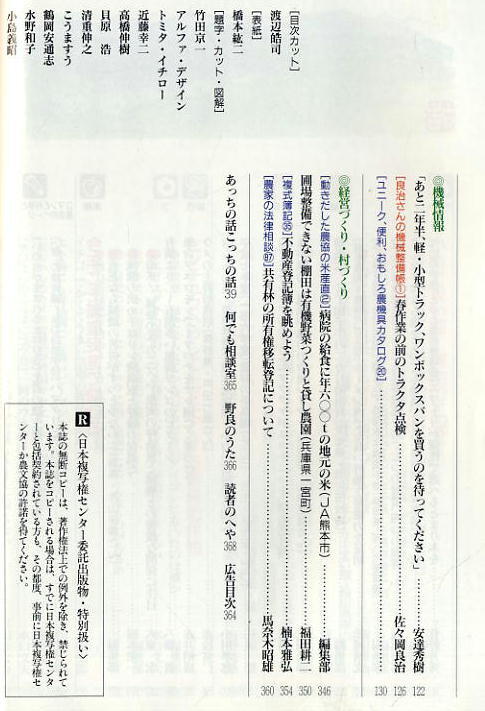 ［目次カット］
渡辺皓司
［表紙］
橋本紘二
［題字・カット・図解］
竹田京一
アルファ・デザイン
トミタ・イチロー
近藤幸二
高橋伸樹
貝原 浩
清重伸之
こうますう
鶴岡安通志
水野和子
小島義昭
◎機械情報
「あと二年半、軽・小型トラック、ワンボックスバンを買うのを待ってください」……安達秀樹 122
［良治さんの機械整備帳①］春作業の前のトラクタ点検……佐々岡良治 126
［ユニーク、便利、おもしろ農機具カタログ⑳］……130
◎経営づくり・村づくり
［動きだした農協の米産直②］病院の給食に年六〇〇tの地元の米（JA熊本市）……編集部 346
圃場整備できない棚田は有機野菜つくりと貸し農園（兵庫県一宮町）……福田耕二 350
［複式簿記㉟］不動産登記簿を眺めよう……楠本雅弘 354
［農家の法律相談87］共有林の所有権移転登記について……馬奈木昭雄 360
あっちの話こっちの話39 何でも相談室365 野良のうた366 読者のへや368 広告目次364
R〈日本複写権センター委託出版物・特別扱い〉
本誌の無断コピーは、著作権法上での例外を除き、禁じられて
います。本誌をコピーされる場合は、すでに日本複写権センタ
ーと包括契約されている方も、その都度、事前に日本複写権セ
ンターか農文協の許諾を得てください。